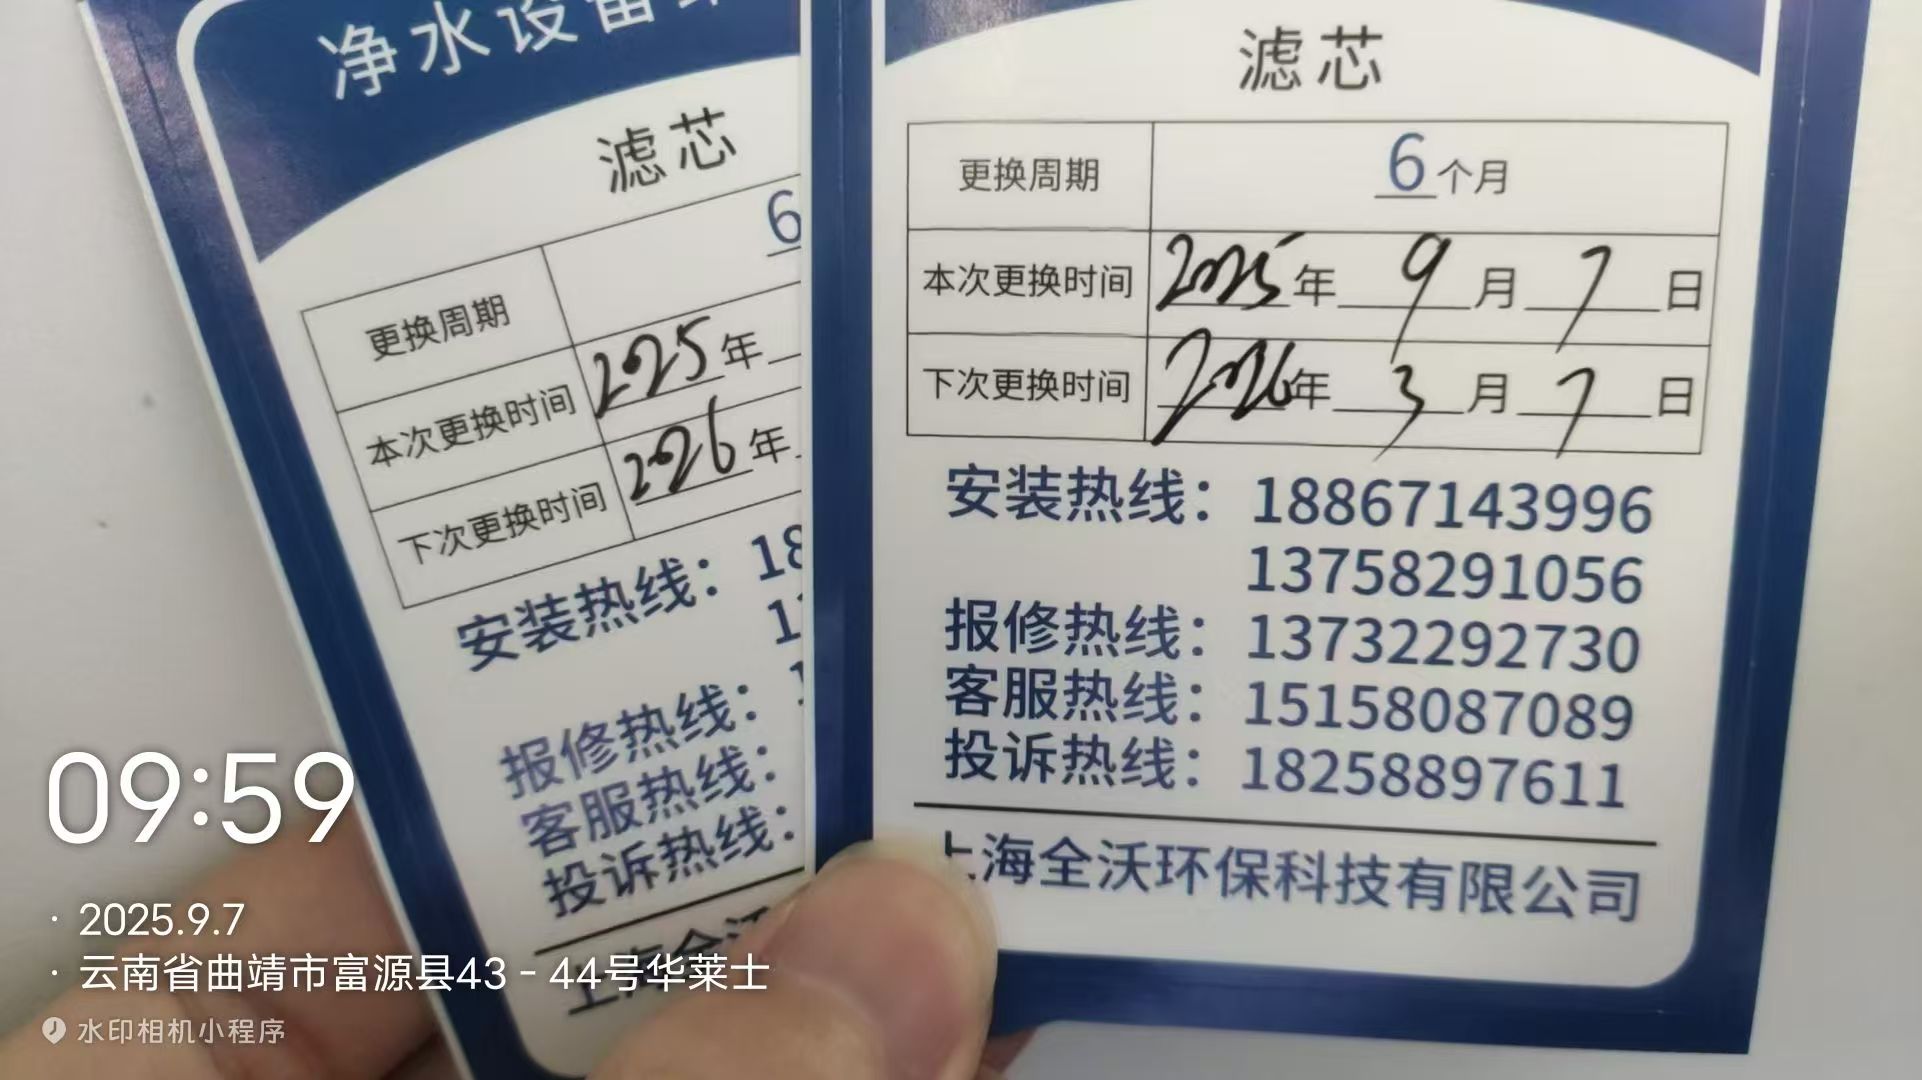 净水设备
滤芯
更换周期 6
本次更换时间 2025年
下次更换时间 2026年
安装热线：18
1
报修热线：1
客服热线：
投诉热线：
上海全沃
滤芯
更换周期 6个月
本次更换时间 2025年9月7日
下次更换时间 2026年3月7日
安装热线：18867143996
13758291056
报修热线：13732292730
客服热线：15158087089
投诉热线：18258897611
上海全沃环保科技有限公司
09:59
· 2025.9.7
· 云南省曲靖市富源县43-44号华莱士
水印相机小程序